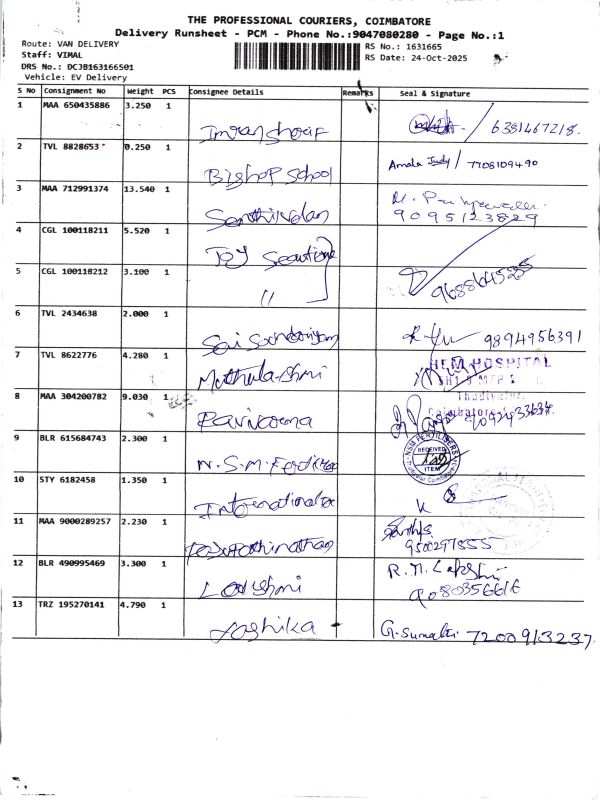 THE PROFESSIONAL COURIERS, COIMBATORE
Delivery Runsheet - PCM - Phone No.:9047080280 - Page No.:1
Route: VAN DELIVERY
Staff: VIMAL
DRS No.: DCJB163166501
Vehicle: EV Delivery
RS No.: 1631665
RS Date: 24-Oct-2025
S No Consignment No Weight PCS Consignee Details Remarks Seal & Signature
1 MAA 650435886 3.250 1
Imran Shorif 6381467218.
2 TVL 8828653 0.250 1
Bishop School Amala Judy / 7708109490
3 MAA 712991374 13.540 1
Senthilvelan 9095123829
4 CGL 100118211 5.520 1
Toy
5 CGL 100118212 3.100 1
"
6 TVL 2434638 2.000 1
Sai 9894956391
7 TVL 8622776 4.280 1
HEM HOSPITAL
8 MAA 304200782 9.030 1
Coimbatore
9 BLR 615684743 2.300 1
N.S.M.
NSM FERTILISERS
RECEIVED
ITEM
10 STY 6182458 1.350 1
International
11 MAA 9000289257 2.230 1
12 BLR 490995469 3.300 1
Lakshmi R.M. Lakshmi
9080356616
13 TRZ 195270141 4.790 1
Yashika G. Sumathi 7200913237